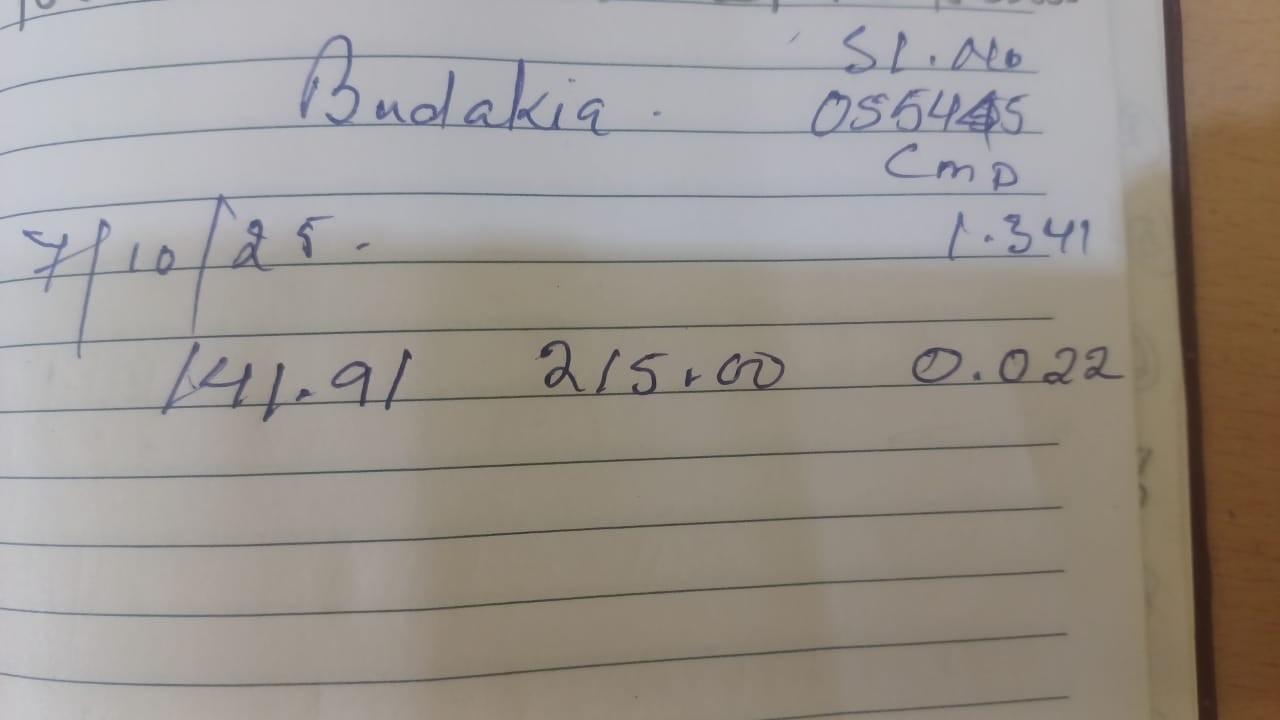 Sl. No
Budakia. 055445
CMD
7/10/25. 1.341
141.91 215.00 0.022